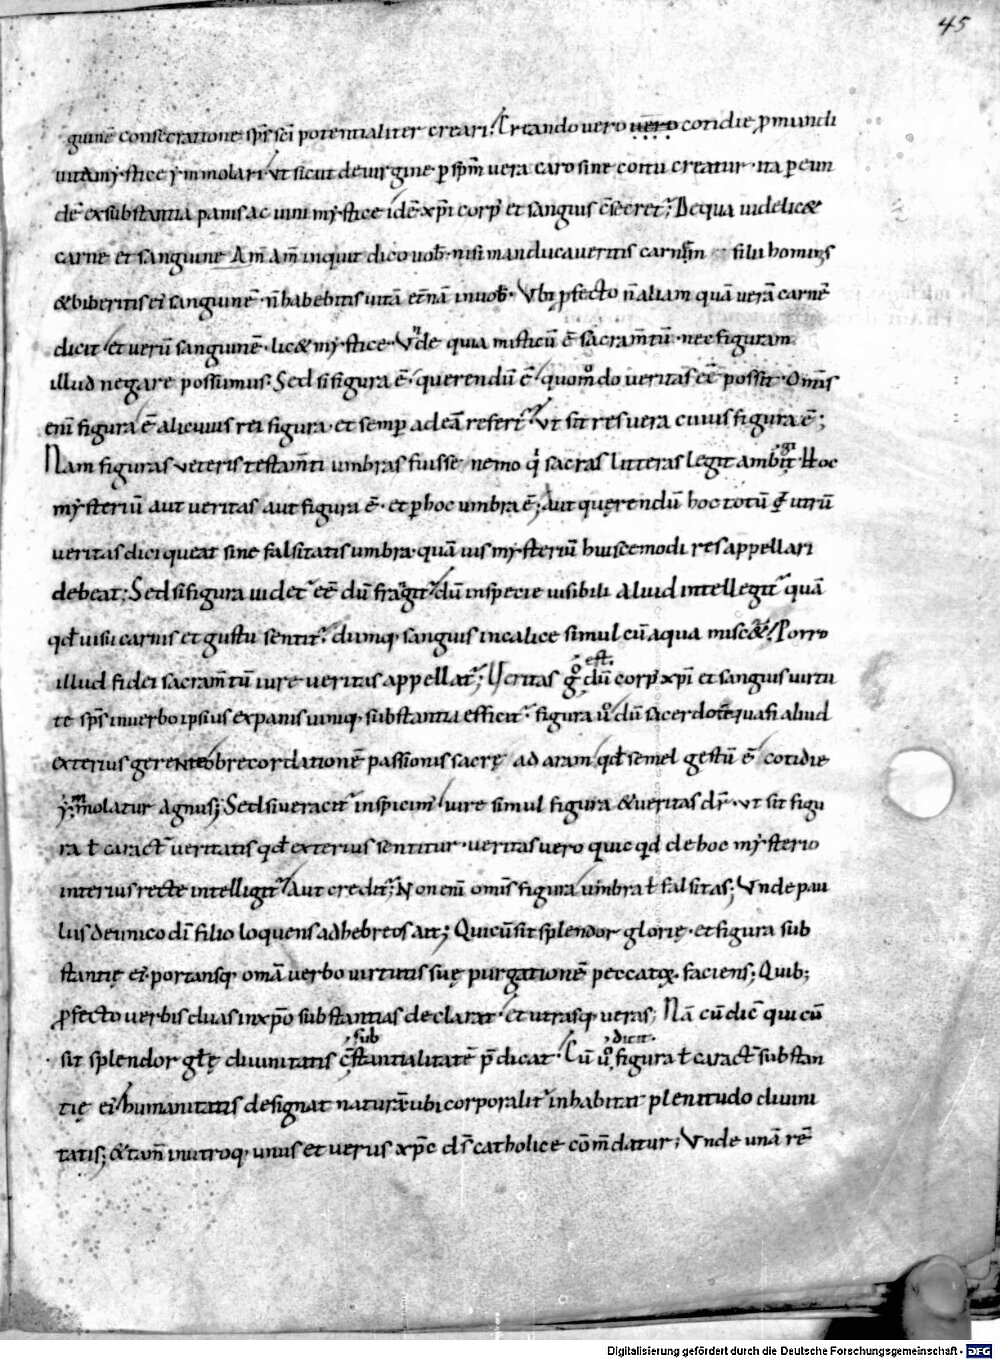 45
guinē consecratione sp̄s sc̄i potentialiter creari. Creando uero uero cotidie ꝓ mundi
uita mystice ymmolari. Vt sicut de uirgine ꝑ sp̄m uera caro sine coitu creatur. ita ꝑ eun
dē ex substantia panis ac uini mystice idē xp̄i corp' et sanguis c̄secret'; De qua uidelic&
carne et sanguine Am̄ Am̄ inquit dico uob̄. nisi manducaueritis carnē filii hominis
& biberitis ei' sanguinē. n̄ habebitis uitā et̄nā in uob̄. Vbi ꝓfecto n̄ aliam quā uerā carnē
dicit et uerū sanguinē. lic& mystice. Vnde quia misticū ē sacram̄tū. nec figuram
illud negare possumus. Sed si figura ē. querendū ē quomodo ueritas eē possit. Omīs
enī figura ē alicuius rei figura. et semꝑ ad eā refert'. Vt sit res uera cuius figura ē;
Nam figuras ueteris testam̄ti umbras fuisse nemo q̇ sacras litteras legit ambigit. Hoc
mysteriū aut ueritas aut figura ē. et ꝑ hoc umbra ē; Aut querendū hoc totū utrū
ueritas dici queat sine falsitatis umbra. quāuis mysteriū huiscemodi res appellari
debeat; Sed si figura uidet' eē dū frangit' dū in specie uisibili aliud intellegit' quā
qd̄ uisu carnis et gustu sentit'. dumq; sanguis in calice simul cū aqua misc&'. Porro
illud fidei sacram̄tū iure ueritas appellat'; Veritas g̊ est. dū corp' xp̄i et sanguis uirtu
te sp̄s in uerbo ipsius ex panis uiniq; substantia efficit'. figura ů dū sacerdote quasi aliud
exterius gerente ob recordationē passionis sacrę ad aram qd̄ semel gestū ē cotidie
ymmolatur agnus; Sed si ueracit' inspicim' iure simul figura & ueritas dr̄. Vt sit figu
ra ł caract' ueritatis qd̄ exterius sentitur. ueritas uero quicqd̄ de hoc mysterio
interius recte intelligit' Aut credit'; Non enī omīs figura umbra ł falsitas; Vnde pau
lus de unico dī filio loquens ad hebreos ait; Qui cū sit splendor glorię. et figura sub
stantię ei'. portansq; omā uerbo uirtutis suę purgationē peccatoꝝ faciens; Quib;
ꝓfecto uerbis duas in xp̄o substantias declarat et utrasq; ueras; Nā cū dic̄ qui cū
sit splendor głę diuinitatis c̄substantialitatē p̄dicat. Cū ů dicit. figura ł caract' substan
tię ei' humanitatis designat naturā ubi corporalit' inhabitat plenitudo diuini
tatis; & tam̄ in utroq; unus et uerus xp̄c d̄s catholice cōm̄datur; Vnde unā rē
Digitalisierung gefördert durch die Deutsche Forschungsgemeinschaft - DFG